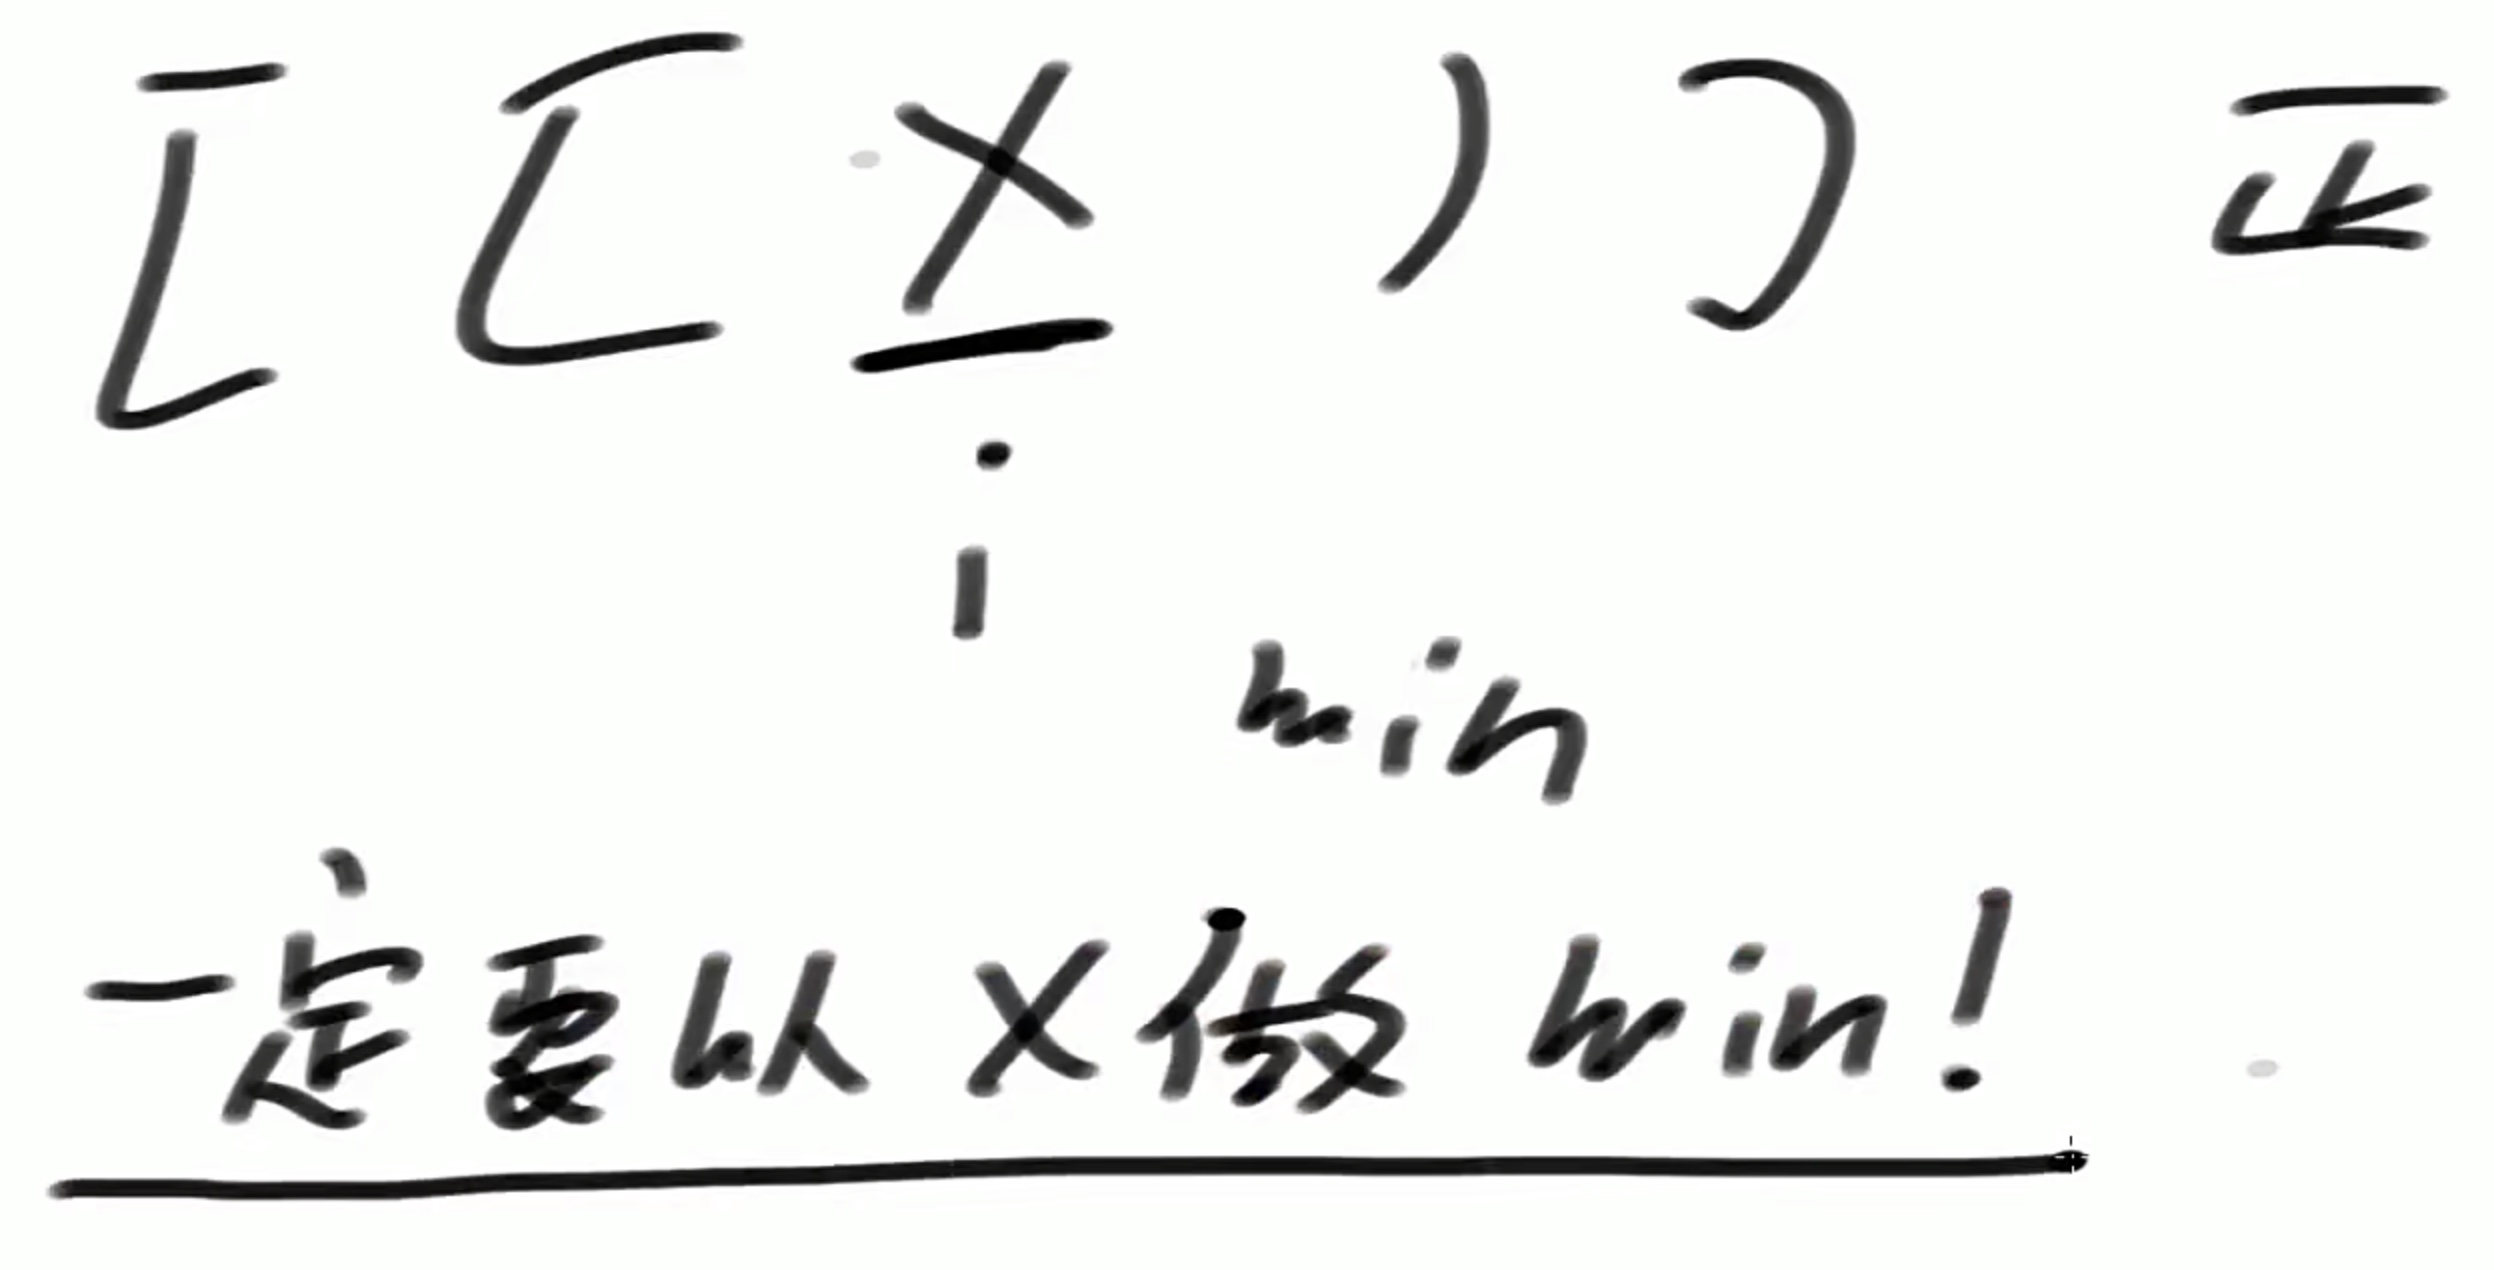 [ [ X ) ] 正
i
min
一定要以 X 做 min!